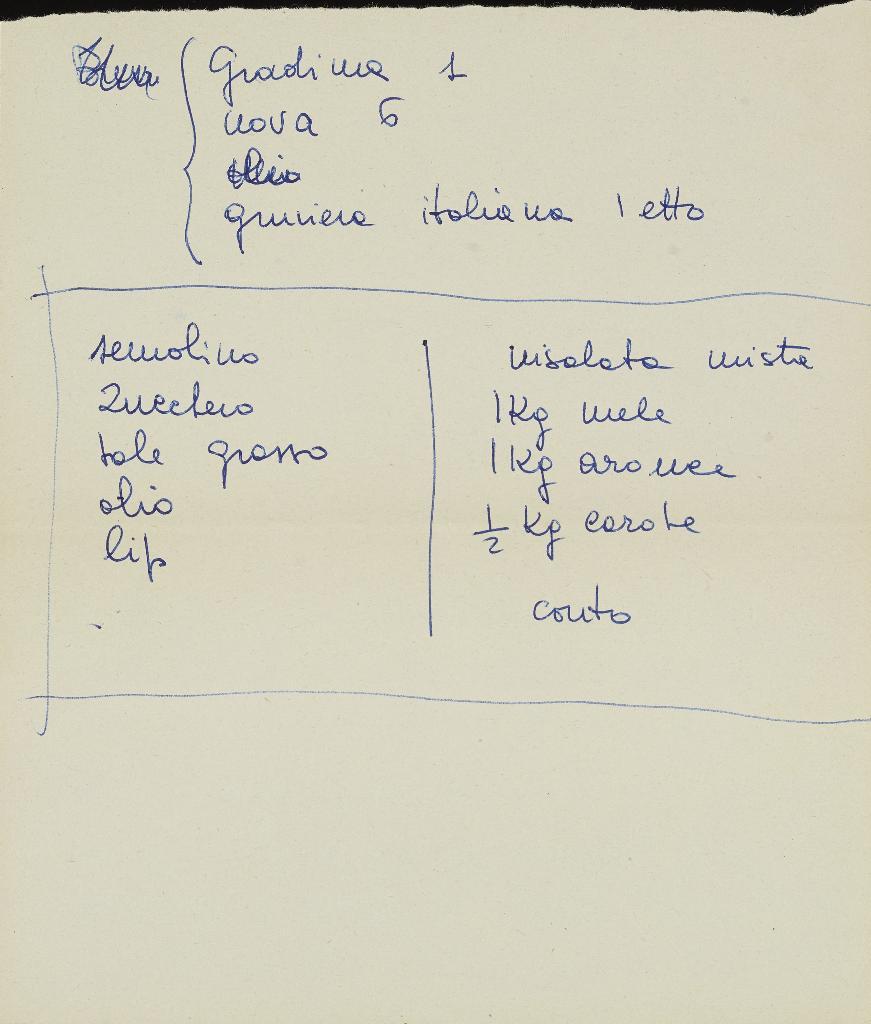 Gradina 1
uova 6
olio
gruviera italiana 1 etto
semolino
Zucchero
sale grosso
olio
lip
insalata mista
1 Kg mele
1 Kg arance
1/2 Kg carote
conto